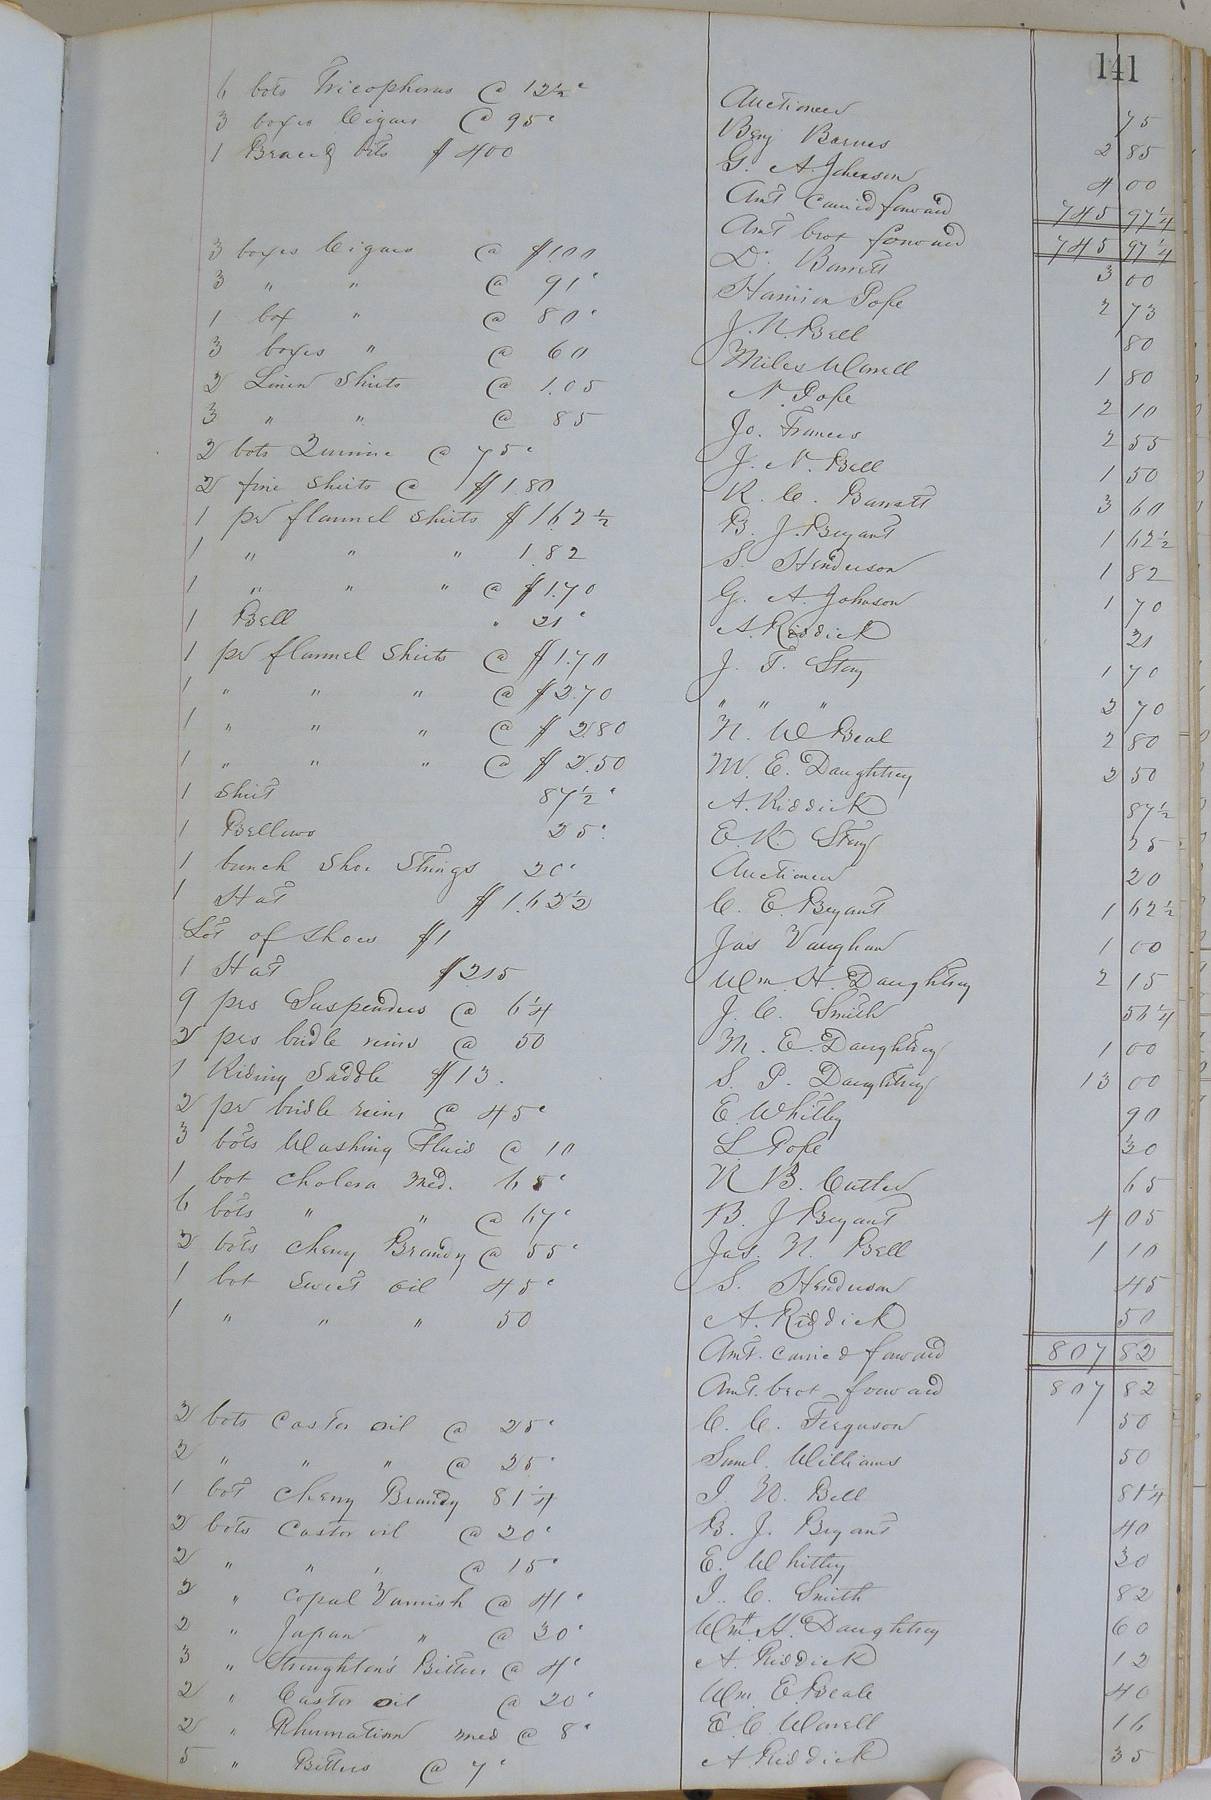 141
6 bots Tricopherous @ 12½c Auctioneer 75
3 boxes Cigars @ 95c Benj Barnes 2 85
1 Brace & bits $4 00 G. A. Johnson 4 00
Amt Carried forward 745 97¼
Amt brot forward 745 97¼
3 boxes Cigars @ $1.00 Dr. Barrett 3 00
3 " " @ 91c Harrison Pope 2 73
1 box " @ 80c J. N. Bell 80
3 boxes " @ 60 Miles Worrell 1 80
2 Linen Shirts @ 1.05 N. Pope 2 10
3 " " @ 85 Jo. Frances 2 55
2 bots Quinine @ 75c J. N. Bell 1 50
2 fine Shirts @ $1 80 R. C. Barrett 3 60
1 pr flannel Shirts $1.62½ B. J. Bryant 1 62½
1 " " " 1 82 S. Henderson 1 82
1 " " " @ $1.70 G. A. Johnson 1 70
1 Bell " 21c A. Riddick 21
1 pr flannel Shirts @ $1.70 J. T. Story 1 70
1 " " " @ $2.70 " " " 2 70
1 " " " @ $2.80 N. W Beal 2 80
1 " " " @ $2.50 M. E. Daughtrey 2 50
1 Shirt 87½c A. Riddick 87½
1 Bellows 25c. E. R. Story 25
1 bunch Shoe Strings 20c Auctioneer 20
1 Hat $1.62½ C. E. Bryant 1 62½
Lot of Shoes $1 Jas Vaughan 1 00
1 Hat $2.15 Wm. H. Daughtrey 2 15
9 prs Suspenders @ 6¼ J. C. Smith 56¼
2 prs bridle reins @ 50 M. E. Daughtrey 1 00
1 Riding Saddle $13. S. P. Daughtrey 13 00
2 pr bridle reins @ 45c E. Whitley 90
3 bots Washing Fluid @ 10 L. Pope 30
1 bot Cholera Med. 65c R B. Cutler 65
6 bots " " @ 67c B. J Bryant 4 05
2 bots Cherry Brandy @ 55c Jas. N. Bell 1 10
1 bot Sweet Oil 45c S. Henderson 45
1 " " " 50 A. Riddick 50
Amt. Carried forward 807 82
Amt. brot forward 807 82
2 bots Castor Oil @ 25c C. C. Ferguson 50
2 " " " @ 25c Saml. Williams 50
1 bot Cherry Brandy 81¼ J. N. Bell 81¼
2 bots Castor oil @ 20c B. J. Bryant 40
2 " " " @ 15c E. Whitley 30
2 " Copal Varnish @ 41c J. C. Smith 82
2 " Japan " @ 30c Wm. H. Daughtrey 60
3 " Stoughton's Bitters @ 4c A. Riddick 12
2 " Castor oil @ 20c Wm. E. Beale 40
2 " Rhumatism med @ 8c E. C. Worrell 16
5 " Bitters @ 7c A. Riddick 35